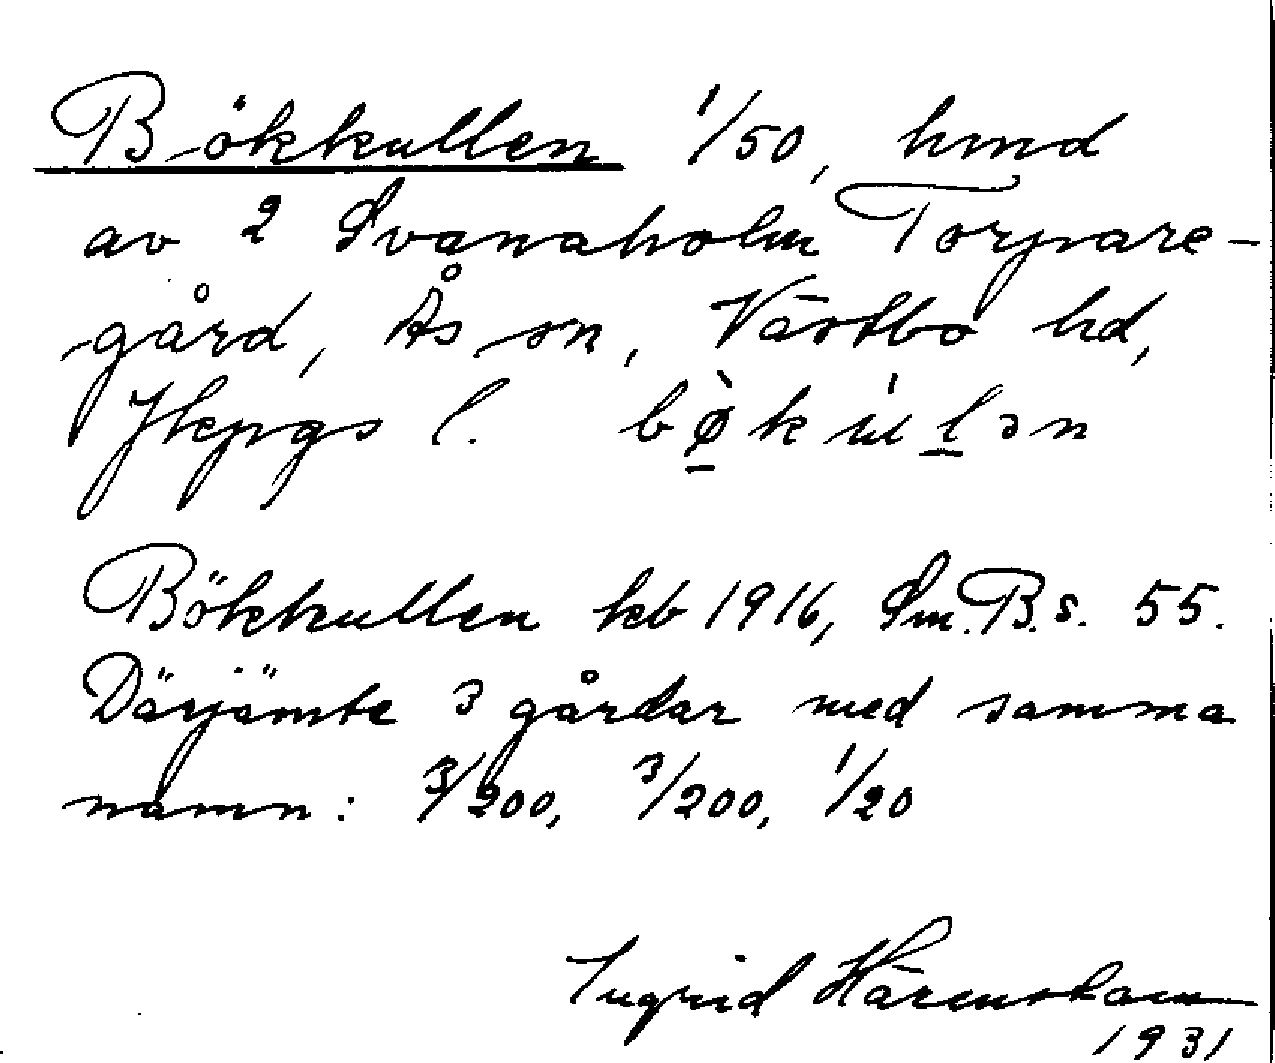 Bökkullen 1/50, hmd
av 2 Svanaholm Torpare-
gård, Ås sn, Västbo hd,
Jkpgs l. bø̀kúlən
Bökkullen kb 1916, Sm.B.s. 55.
Därjämte 3 gårdar med samma
namn: 3/200, 3/200, 1/20
Ingrid
1931